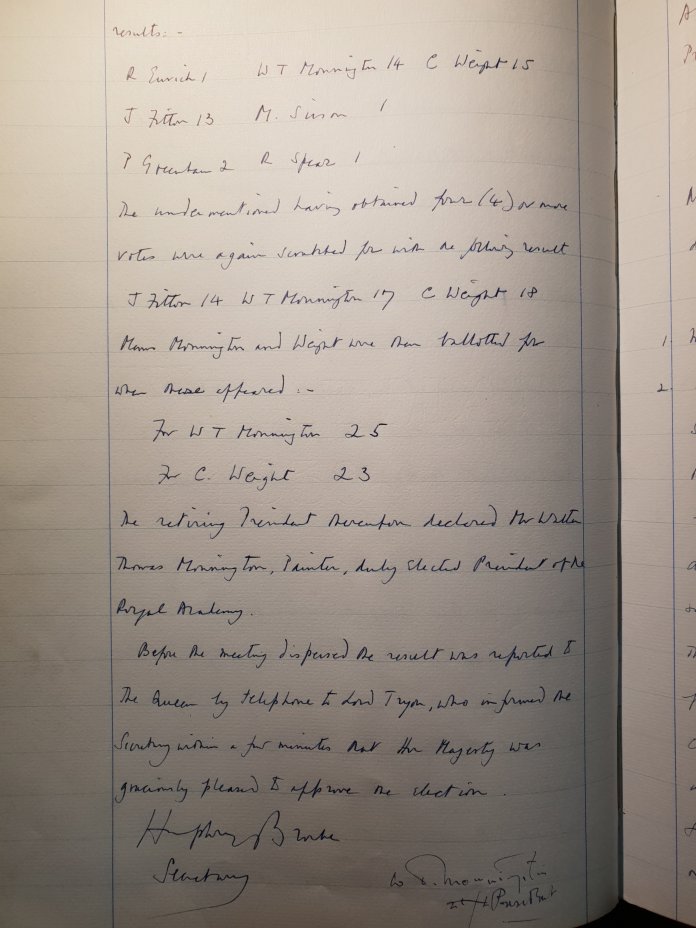 results: -
R Eurich 1 W T Monnington 14 C Weight 15
J Fitton 13 M. Sisson 1
P Greenham 2 R Spear 1
The undermentioned having obtained four (4) or more
votes were again scratched for with the following result
J Fitton 14 W T Monnington 17 C Weight 18
Messrs Monnington and Weight were then ballotted for
when there appeared : -
For W T Monnington 25
For C. Weight 23
The retiring President thereupon declared Mr Walter
Thomas Monnington, Painter, duly elected President of the
Royal Academy.
Before the meeting dispersed the result was reported to
The Queen by telephone to Lord Tryon, who informed the
Secretary within a few minutes that Her Majesty was
graciously pleased to approve the election.
Humphrey Brooke
Secretary
W. T. Monnington
President
1.
2.